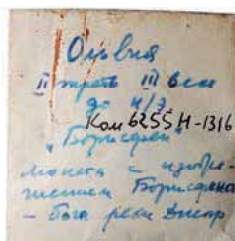 Ольвия
II треть III века
до н/э
Кол 6255 Н-1316
"Борисфен"
монета с изобра-
жением Борисфена
- бога реки Днепр